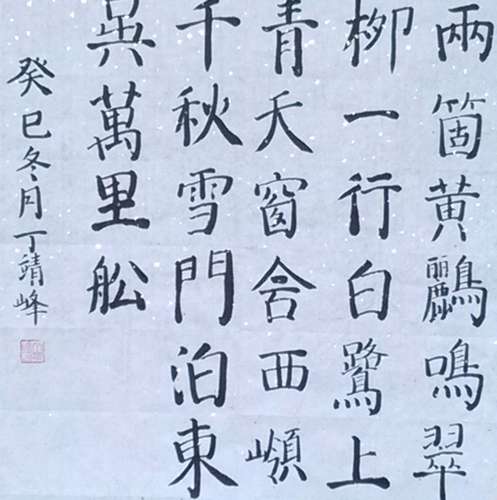 兩箇黃鸝鳴翠
柳一行白鷺上
青天窗含西嶺
千秋雪門泊東
吳萬里船
癸巳冬月丁靖峰